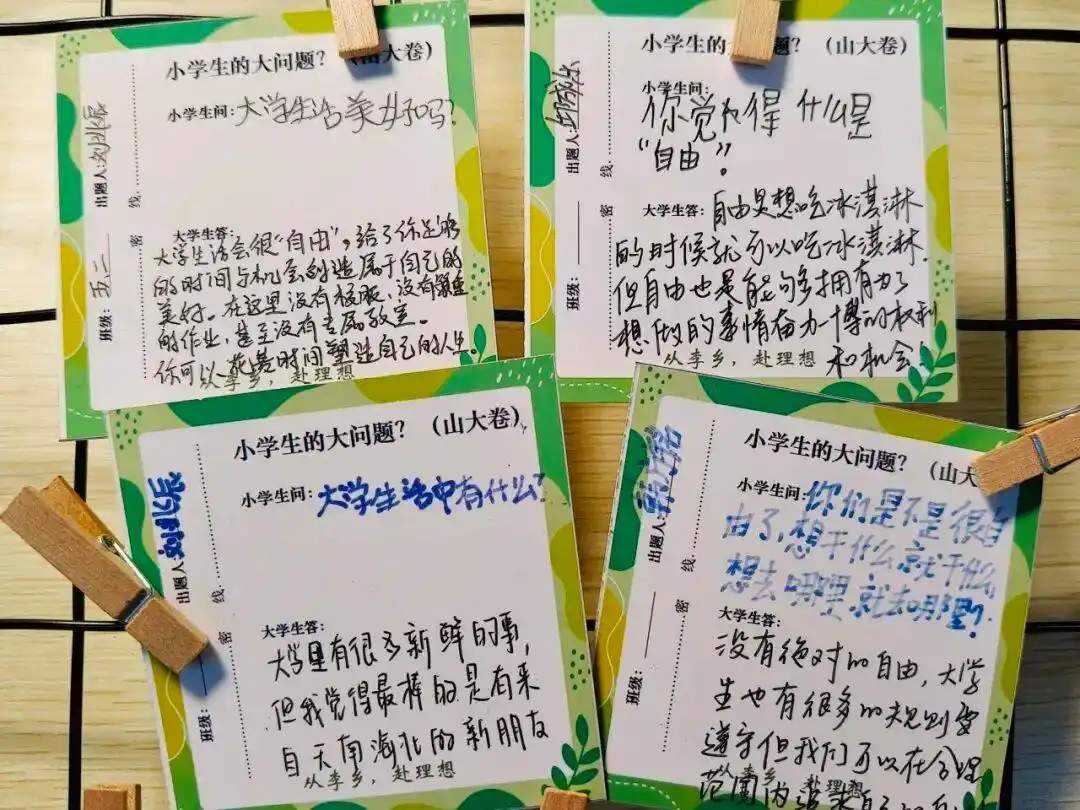 小学生的大问题？（山大卷）
小学生问：大学生活美好吗?
大学生答：
大学生活会很"自由"，给了你足够
的时间与机会创造属于自己的
美好。在这里没有校服，没有繁重
的作业，甚至没有专属教室。
你可以花费时间塑造自己的人生。
从李乡，赴理想
班级：五二
出题人：刘北辰
密
线
小学生的大问题？（山大卷）
小学生问：
你觉得 什么是
"自由"。
大学生答：自由是想吃冰淇淋
的时候就可以吃冰淇淋.
但自由也是能够拥有为了
想做的事情奋力一博的权利
和机会！
从李乡，赴理想
班级：
出题人：
密
线
小学生的大问题？（山大卷）
小学生问：大学生活中有什么?
大学生答：
大学里有很多新鲜的事,
但我觉得最棒的是有来
自天南海北的新朋友
从李乡，赴理想
班级：
出题人：刘北辰
密
线
小学生的大问题？（山大
小学生问：你们是不是很自
由了,想干什么就干什么,
想去哪里就去哪里?
大学生答：
没有绝对的自由，大学
生也有很多的规则要
遵守但我们可以在合理
范围内追求自己的
乡，赴理想
班级：
出题人：
密
线